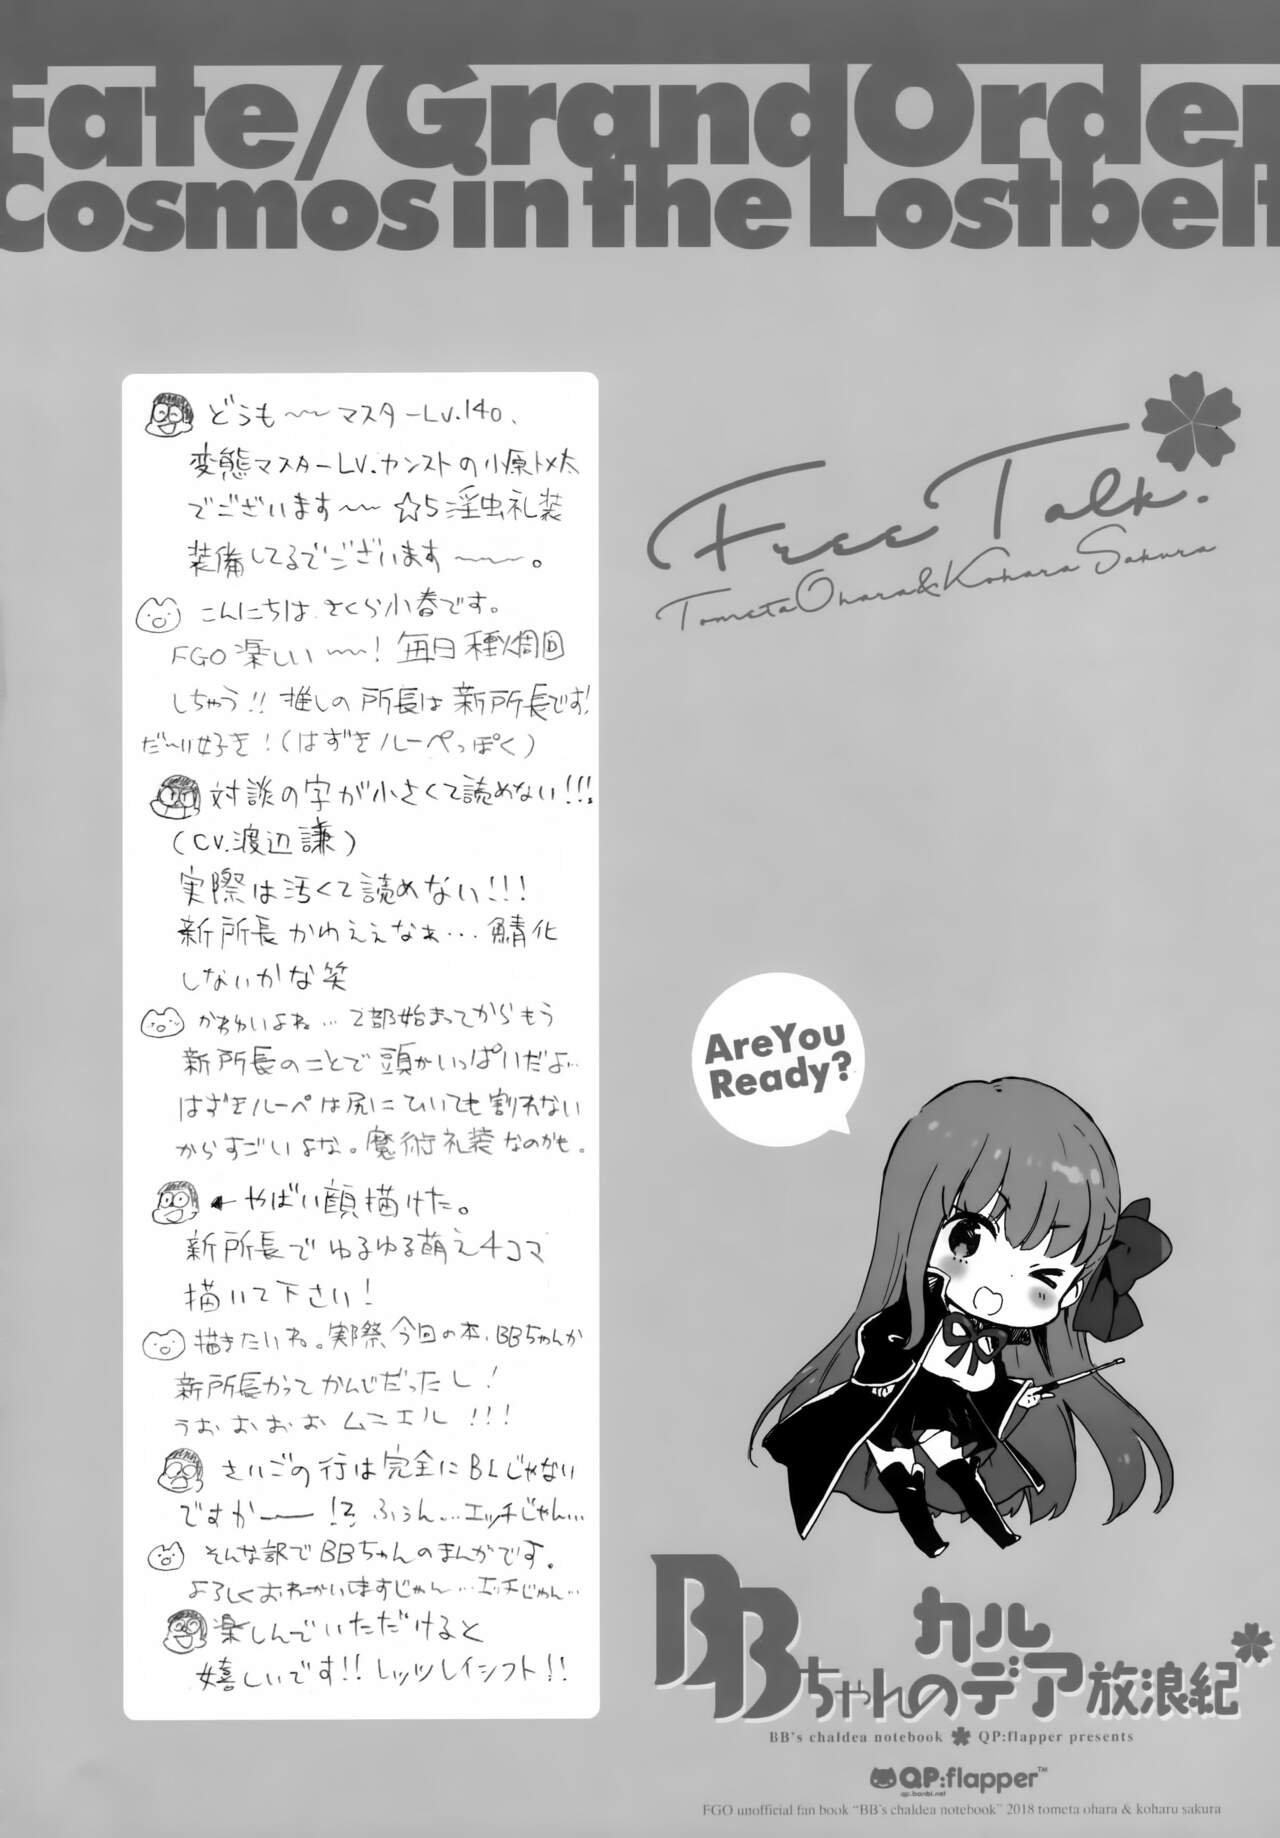 Fate/Grand Order
Cosmos in the Lostbelt
Free Talk.
Tometa Ohara & Koharu Sakura
どうも〜〜マスターLv.140、
変態マスターLv.カンストの小原トメ太
でございます〜〜☆5淫虫礼装
装備してるでございます〜〜。
こんにちは、さくら小春です。
FGO楽しい〜〜!毎日種火周回
しちゃう!!推しの所長は新所長です!
だ〜い好き!(はずきルーペっぽく)
対談の字が小さくて読めない!!!
(CV.渡辺謙)
実際は汚くて読めない!!!
新所長かわええなぁ…鯖化
しないかな笑
かわいいよね…2部始まってからもう
新所長のことで頭がいっぱいだよ…
はずきルーペは尻にひいても割れない
からすごいよな。魔術礼装なのかも。
←やばい顔描けた。
新所長でゆるゆる萌え4コマ
描いて下さい!
描きたいね。実際今回の本、BBちゃんか
新所長かってかんじだったし!
うおおおおムニエル!!!
さいごの行は完全にBLじゃない
ですかー!?ふぅん…エッチじゃん…
そんな訳でBBちゃんのまんがです。
よろしくおねがいしますじゃん…エッチじゃん…
楽しんでいただけると
嬉しいです!!レッツレイシフト!!
AreYou
Ready?
BBちゃんのカルデア放浪紀
BB's chaldea notebook QP:flapper presents
QP:flapper™
qp.banbi.net
FGO unofficial fan book “BB's chaldea notebook” 2018 tometa ohara & koharu sakura